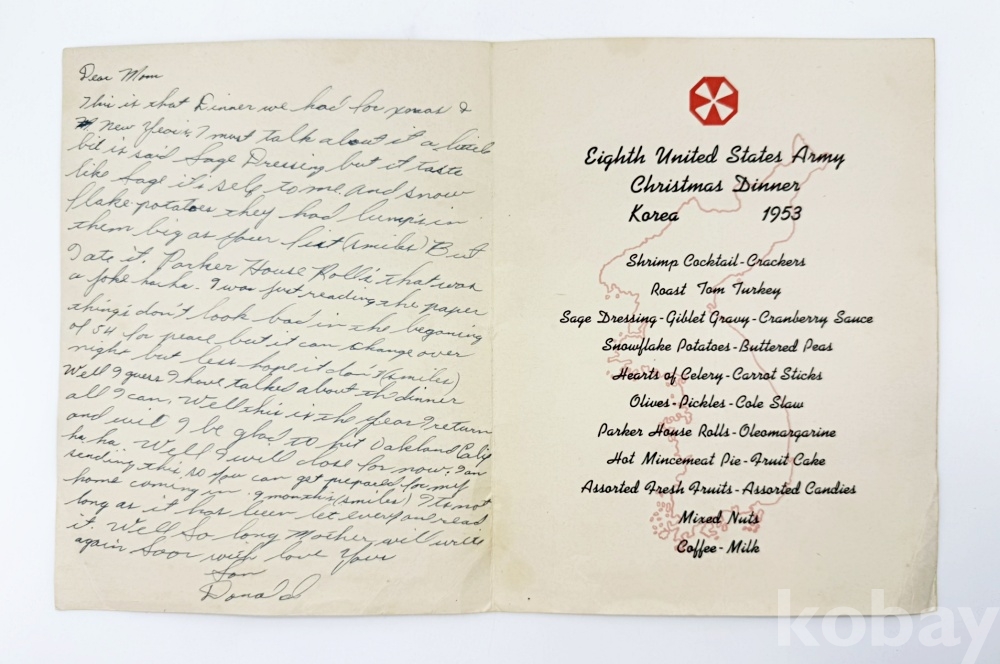 Dear Mom
This is that Dinner we had for xmas &
New Years. I must talk about it a little
bit is said Sage Dressing but it taste
like Sage it's self to me and snow
flake potatoes they had lumps in
them big as your fist (smiles) But
I ate it. Parker House Rolls that was
a joke ha ha. I was just reading the paper
things don't look bad in the beganing
of 54 for peace but it can change over
night but less hope it don't (smiles)
Well I guess I have talked about the dinner
all I can. Well this is the year I return
and will I be glad to hit Oakland Calif
ha ha. Well I will close for now. I an
sending this so you can get prepared for my
home coming in 9 months (smiles) It's not
long as it has been let everyone read
it. Well So long Mother, will write
again Soon with love Your
Son
Donald
Eighth United States Army
Christmas Dinner
Korea 1953
Shrimp Cocktail - Crackers
Roast Tom Turkey
Sage Dressing - Giblet Gravy - Cranberry Sauce
Snowflake Potatoes - Buttered Peas
Hearts of Celery - Carrot Sticks
Olives - Pickles - Cole Slaw
Parker House Rolls - Oleomargarine
Hot Mincemeat Pie - Fruit Cake
Assorted Fresh Fruits - Assorted Candies
Mixed Nuts
Coffee - Milk
kobay